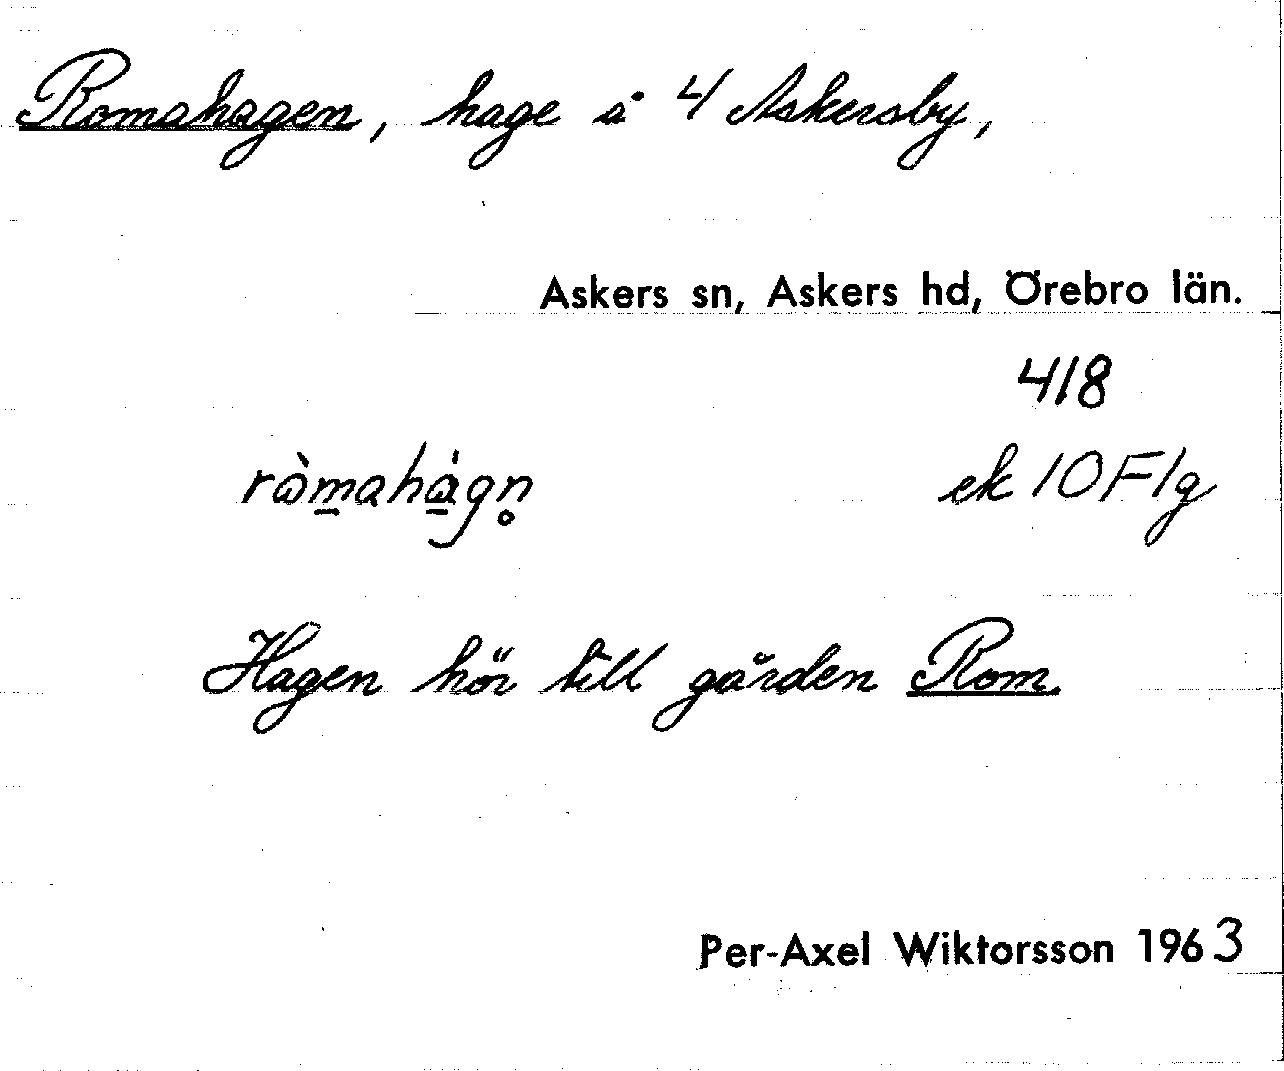 Romahagen, hage å 4 Askersby,
Askers sn, Askers hd, Örebro län.
418
ròmahàgn̥ ek 10F1g
Hagen hör till gården Rom.
Per-Axel Wiktorsson 1963